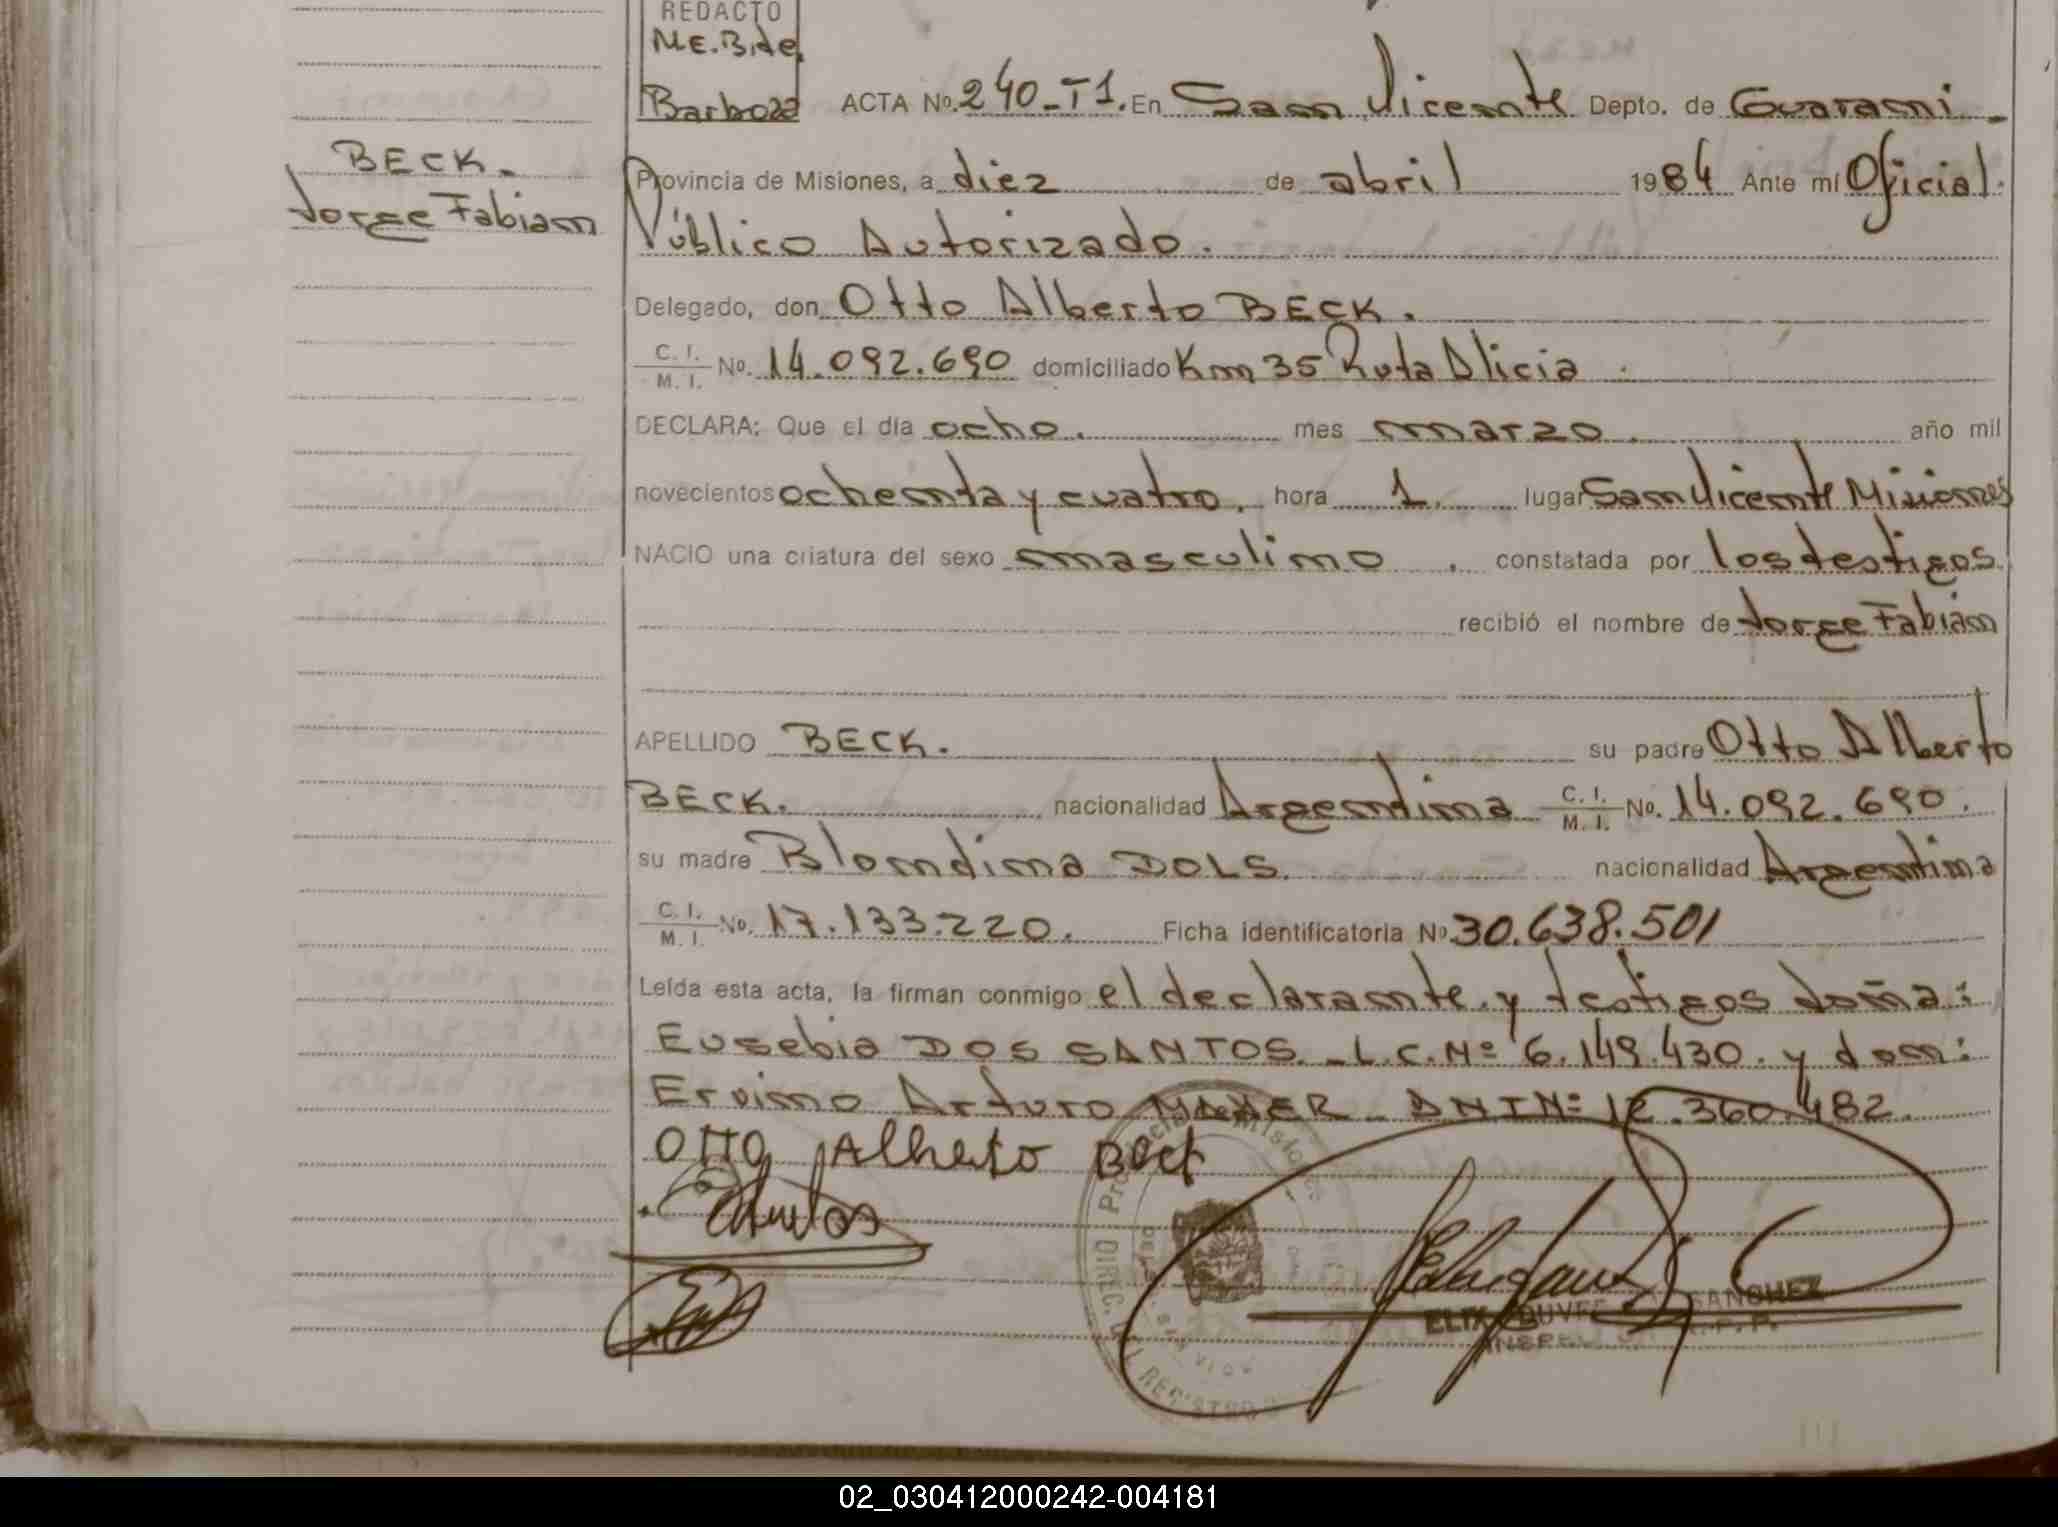 REDACTO
ME. Bite.
Barboza
ACTA No. 240-T1. En San Vicente Depto. de Guarani.
BECK.
Jorge Fabian
Provincia de Misiones, a diez de abril 1984 Ante mí Oficial
Público Autorizado.
Delegado, don Otto Alberto BECK.
C. I. / M. I. No. 14.092.690 domiciliado Km 35 Ruta Alicia.
DECLARA: Que el día ocho. mes marzo. año mil
novecientos ochenta y cuatro. hora 1. lugar San Vicente Misiones
NACIO una criatura del sexo masculino, constatada por los testigos.
recibió el nombre de Jorge Fabián
APELLIDO BECK. su padre Otto Alberto
BECK. nacionalidad Argentina C. I. / M. I. No. 14.092.690.
su madre Blondina DOLS. nacionalidad Argentina
C. I. / M. I. No. 17.133.220. Ficha identificatoria No 30.638.501
Leída esta acta, la firman conmigo el declarante y testigos doña:
Eusebia DOS SANTOS. L.C.Nº 6.149.430. y don:
Ervino Arturo DNI Nº 12.360.482.
Otto Alberto Beck
Provincia Misiones
DIREC. REGISTRO
SANCHEZ
02_030412000242-004181